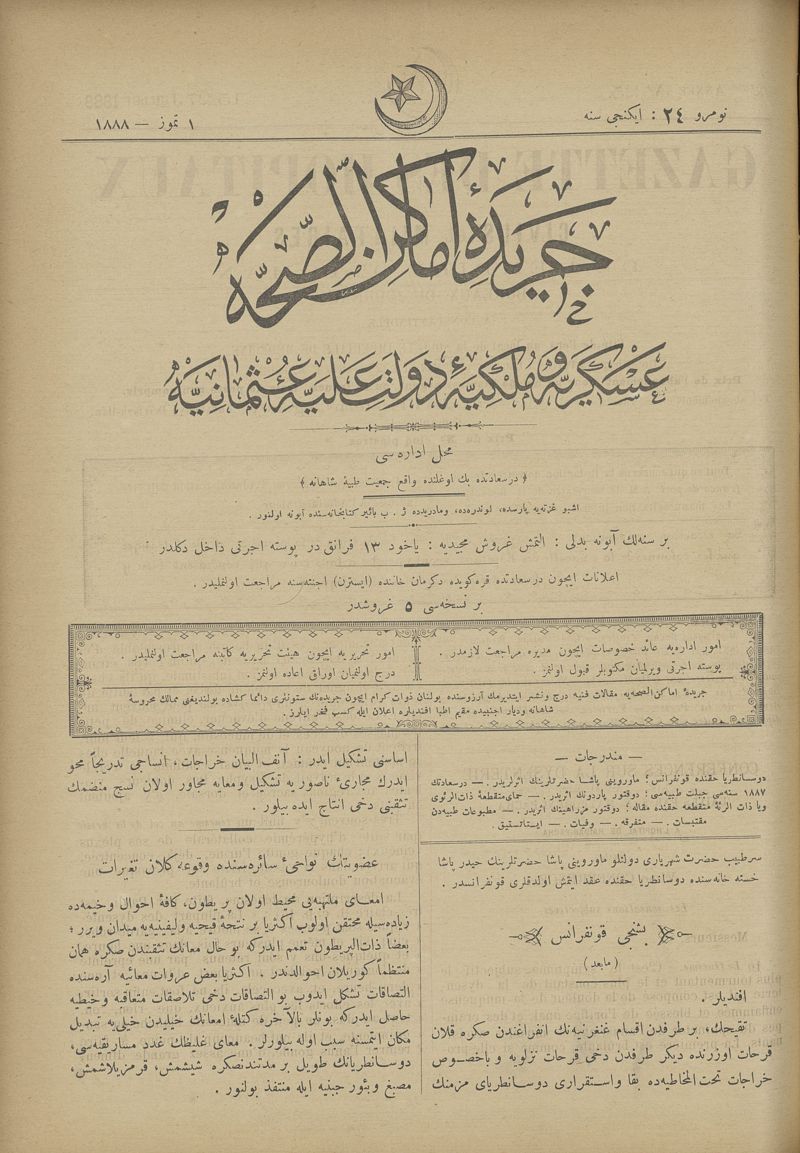 نومرو ٢٤ : ایكنجی سنه
١ تموز — ١٨٨٨
جریدهٔ اماكن الصحّه
عسكریه و ملكیهٔ دولت علیهٔ عثمانیه
محل اداره‌سی
﴿ درسعادتده بك اوغلنده واقع جمعیت طبیهٔ شاهانه ﴾
اشبو غزته‌یه پارسده، لوندره‌ده، ومادریدده ژ . ب بائیر كتابخانه‌سنده آبونه اولنور .
بر سنه‌لك آبونه بدلی : التمش غروش مجیدیه : یاخود ١٣ فرانق در پوسته اجرتی داخل دكلدر
اعلانات ایچون درسعادتده قره‌كویده دكرمان خاننده (ایسترن) اجنته‌سنه مراجعت اولنملیدر .
بر نسخه‌سی ٥ غروشدر
امور اداریه عائد خصوصات ایچون مدیره مراجعت لازمدر .
پوسته اجرتی ویرلمیان مكتوبلر قبول اولنمز .
امور تحریریه ایچون هیئت تحریریه كاتبنه مراجعت اولنملیدر .
درج اولنمیان اوراق اعاده اولنمز .
جریدهٔ اماكن‌الصحه‌یه مقالات فنیه درج ونشر ایتدیرمك آرزوسنده بولنان ذوات كرام ایچون جریده‌نك ستونلری دائما كشاده بولندیغنی ممالك محروسهٔ
شاهانه ودیار اجنبیده مقیم اطبا افندیلره اعلان ایله كسب فخر ایلرز .
— مندرجات —
دوسانطریا حقنده قونفرانس؛ ماورونی پاشا حضرتلرینك اثرلریدر. — درسعادتك
١٨٨٧ سنه‌سی جبلت طبیه‌سی؛ دوقتور پاردونك اثریدر. — حمای متقطعهٔ ذات‌الرئوی
ویا ذات الرئهٔ متقطعه حقنده مقاله؛ دوقتور مزراهینك اثریدر. — مطبوعات طبیه‌دن
مقتبسات. — متفرقه. — وفیات. — ایستاتستیق.
سرطبیب حضرت شهریاری دولتلو ماورونی پاشا حضرتلرینك حیدر پاشا
خسته خانه‌سنده دوسانطریا حقنده عقد ایتمش اولدقلری قونفرانسدر .
بشنجی قونفرانس
( مابعد )
افندیلر .
تقیحك، بر طرفدن اقسام غنغرنیه‌نك انفراغندن صكره قلان
قرحات اوزرنده دیكر طرفدن دخی قرحات نزلویه و باخصوص
خراجات تحت المخاطیه‌ده بقا واستقراری دوسانطریای مزمنك
اساسنی تشكیل ایدر : آنف‌البیان خراجات، انساجی تدریجاً محو
ایدرك مجاریٔ ناصور یه تشكیل ومعایه مجاور اولان نسج منضمك
تثقبنی دخی انتاج ایده بیلور .
عضویتك نواحیٔ سائره‌سنده وقوعه كلان تغیرات
امعای ملتهبه‌یی محیط اولان پر یطون، كافهٔ احوال وخیمه‌ده
زیاده‌سیله محتقن اولوب اكثریا بر نتجهٔ قیحیه ولیفینیه‌یه میدان ویرر ؛
بعضاً ذات‌البریطون تعمم ایدركه بو حال معانك تثقبندن صكره همان
منتظماً كوریلان احوالدندر . اكثریا بعض عروات معائیه آره‌سنده
التصاقات تشكل ایدوب بو التصاقات دخی تلاصقات متعاقبه وخیطیه
حاصل ایدركه بونلر بالآخره كتلهٔ امعانك خیلیدن خیلی‌یه تبدیل
مكان ایتمسنه سبب اوله بیلورلر . معای غلیظك غدد مساریقیه‌سی،
دوسانطریانك طویل بر مدتندنصكره شیشمش، قرمزیلاشمش،
مصبغ وبثور جبنیه ایله منتفذ بولنور .